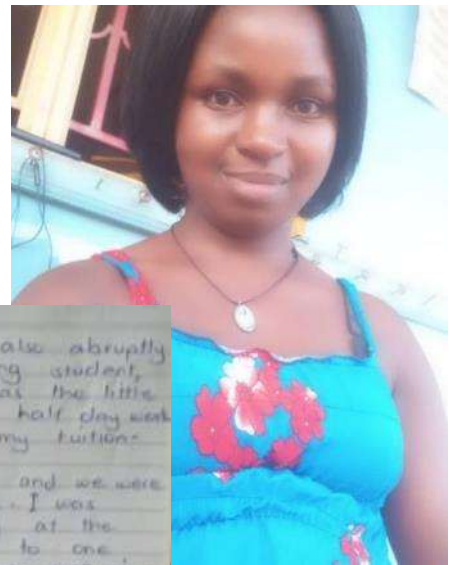 also abruptly
student,
as the little
half day work
my tuition-
and we were
I was
at the
to one